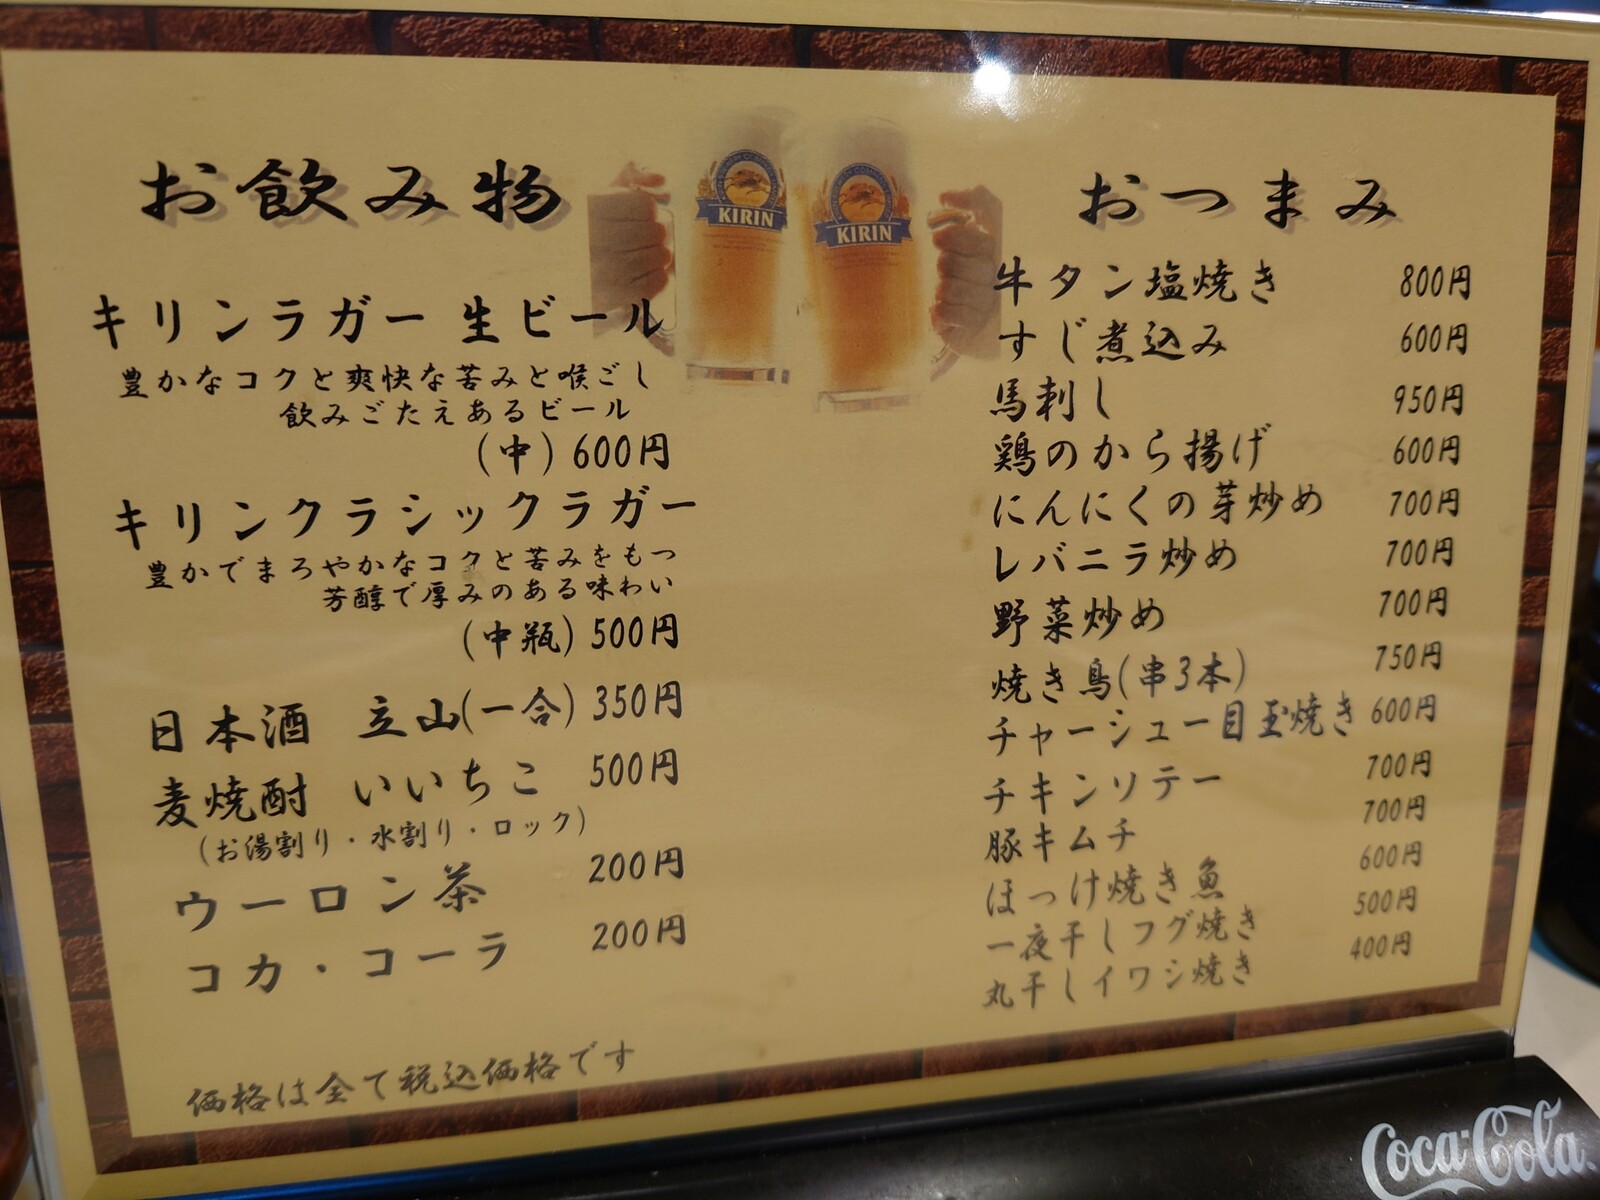 お飲み物
キリンラガー 生ビール
豊かなコクと爽快な苦みと喉ごし
飲みごたえあるビール
(中) 600円
キリンクラシックラガー
豊かでまろやかなコクと苦みをもつ
芳醇で厚みのある味わい
(中瓶) 500円
日本酒 立山(一合) 350円
麦焼酎 いいちこ 500円
(お湯割り・水割り・ロック)
ウーロン茶 200円
コカ・コーラ 200円
価格は全て税込価格です
KIRIN
KIRIN
おつまみ
牛タン塩焼き 800円
すじ煮込み 600円
馬刺し 950円
鶏のから揚げ 600円
にんにくの芽炒め 700円
レバニラ炒め 700円
野菜炒め 700円
焼き鳥(串3本) 750円
チャーシュー目玉焼き 600円
チキンソテー 700円
豚キムチ 700円
ほっけ焼き魚 600円
一夜干しフグ焼き 500円
丸干しイワシ焼き 400円
Coca-Cola